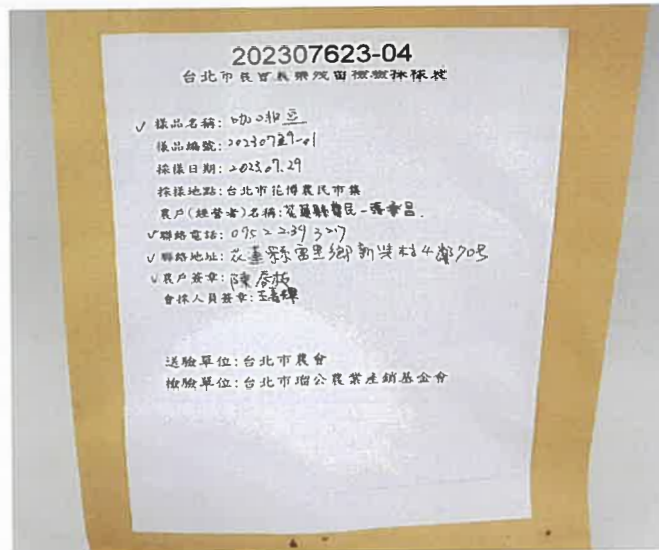 202307623-04
台北市農會農藥殘留檢驗採樣袋
✓ 樣品名稱: 咖啡豆
樣品編號: 20230729-01
採樣日期: 2023.07.29
採樣地點: 台北市花博農民市集
農戶(經營者)名稱: 花蓮縣農民-昌
✓ 聯絡電話: 0952239327
✓ 聯絡地址: 花蓮縣富里鄉新興村4鄰70號
✓ 農戶簽章: 陳
會採人員簽章: 王
送驗單位: 台北市農會
檢驗單位: 台北市瑠公農業產銷基金會